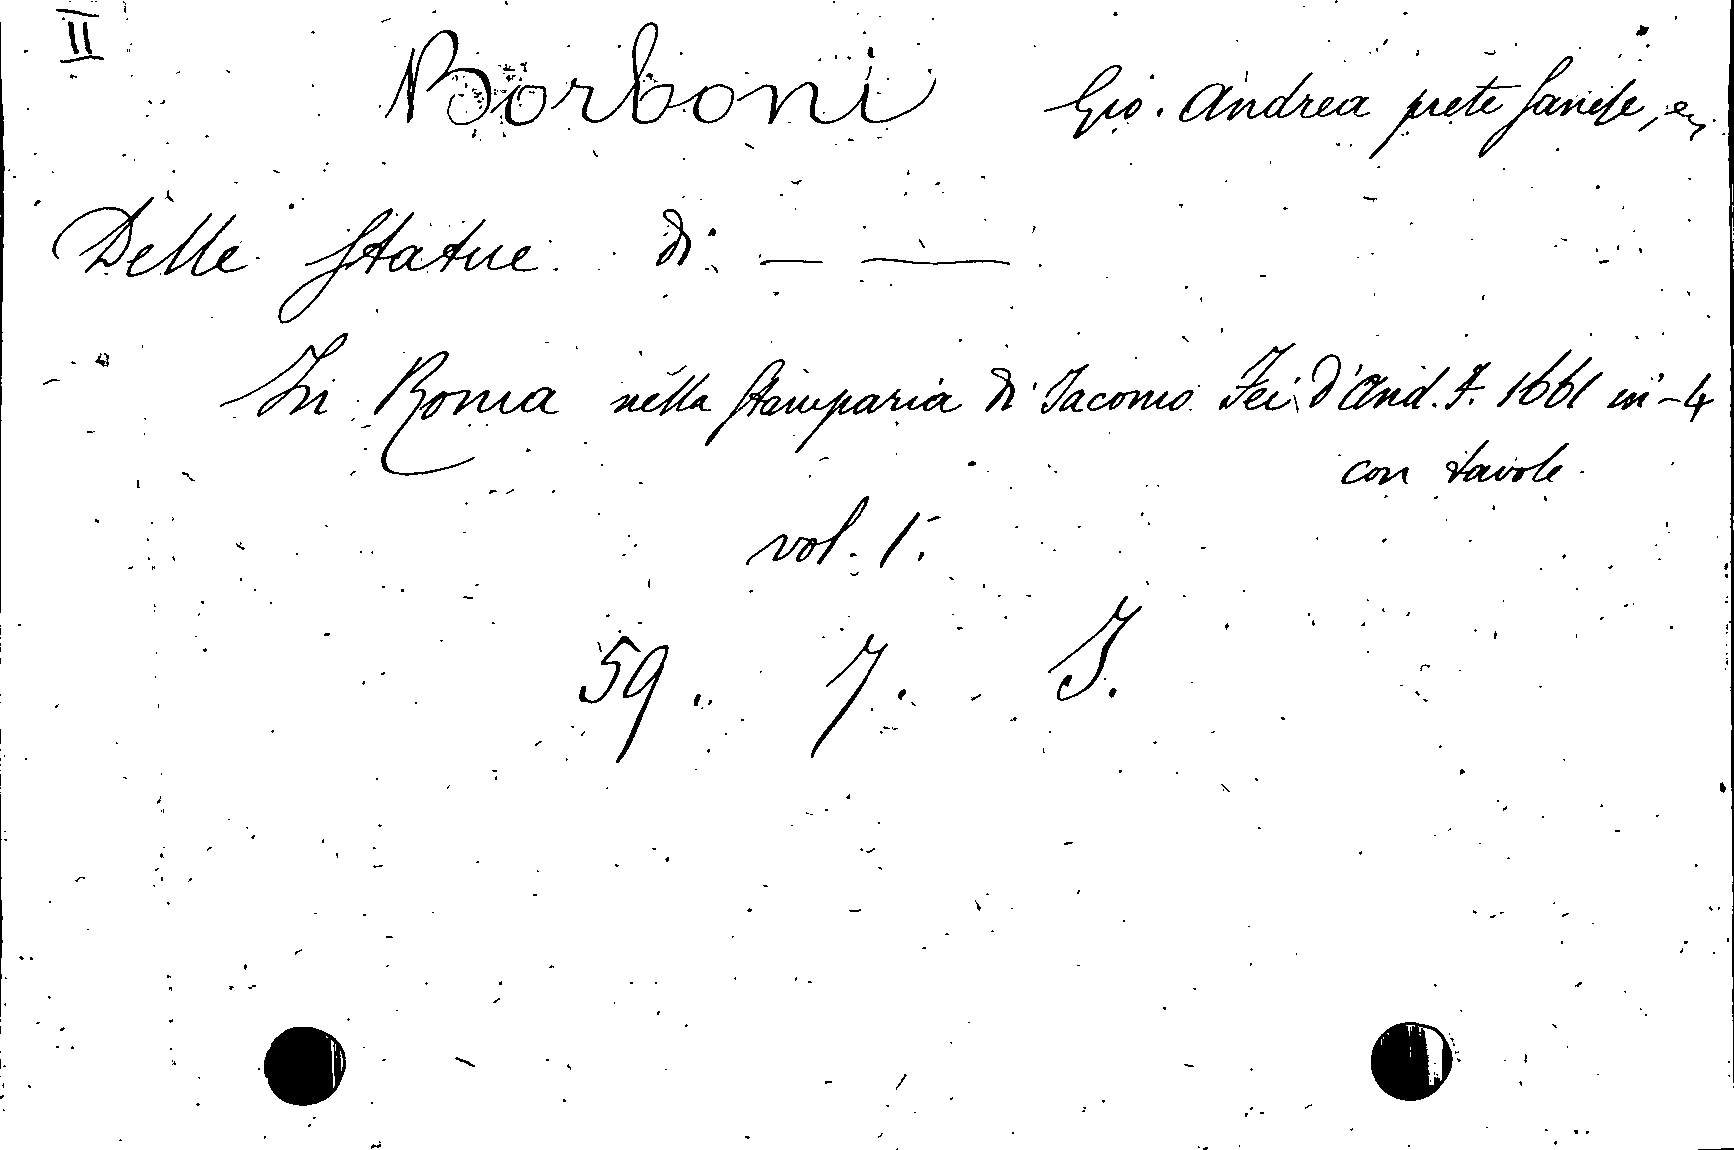 II
Borboni Gio. Andrea prete sanese,
Delle statue di — —
In Roma nella stamparia di Iacomo Fei d'And. F. 1661 in-4
con tavole
vol. 1.
59. 7. I.